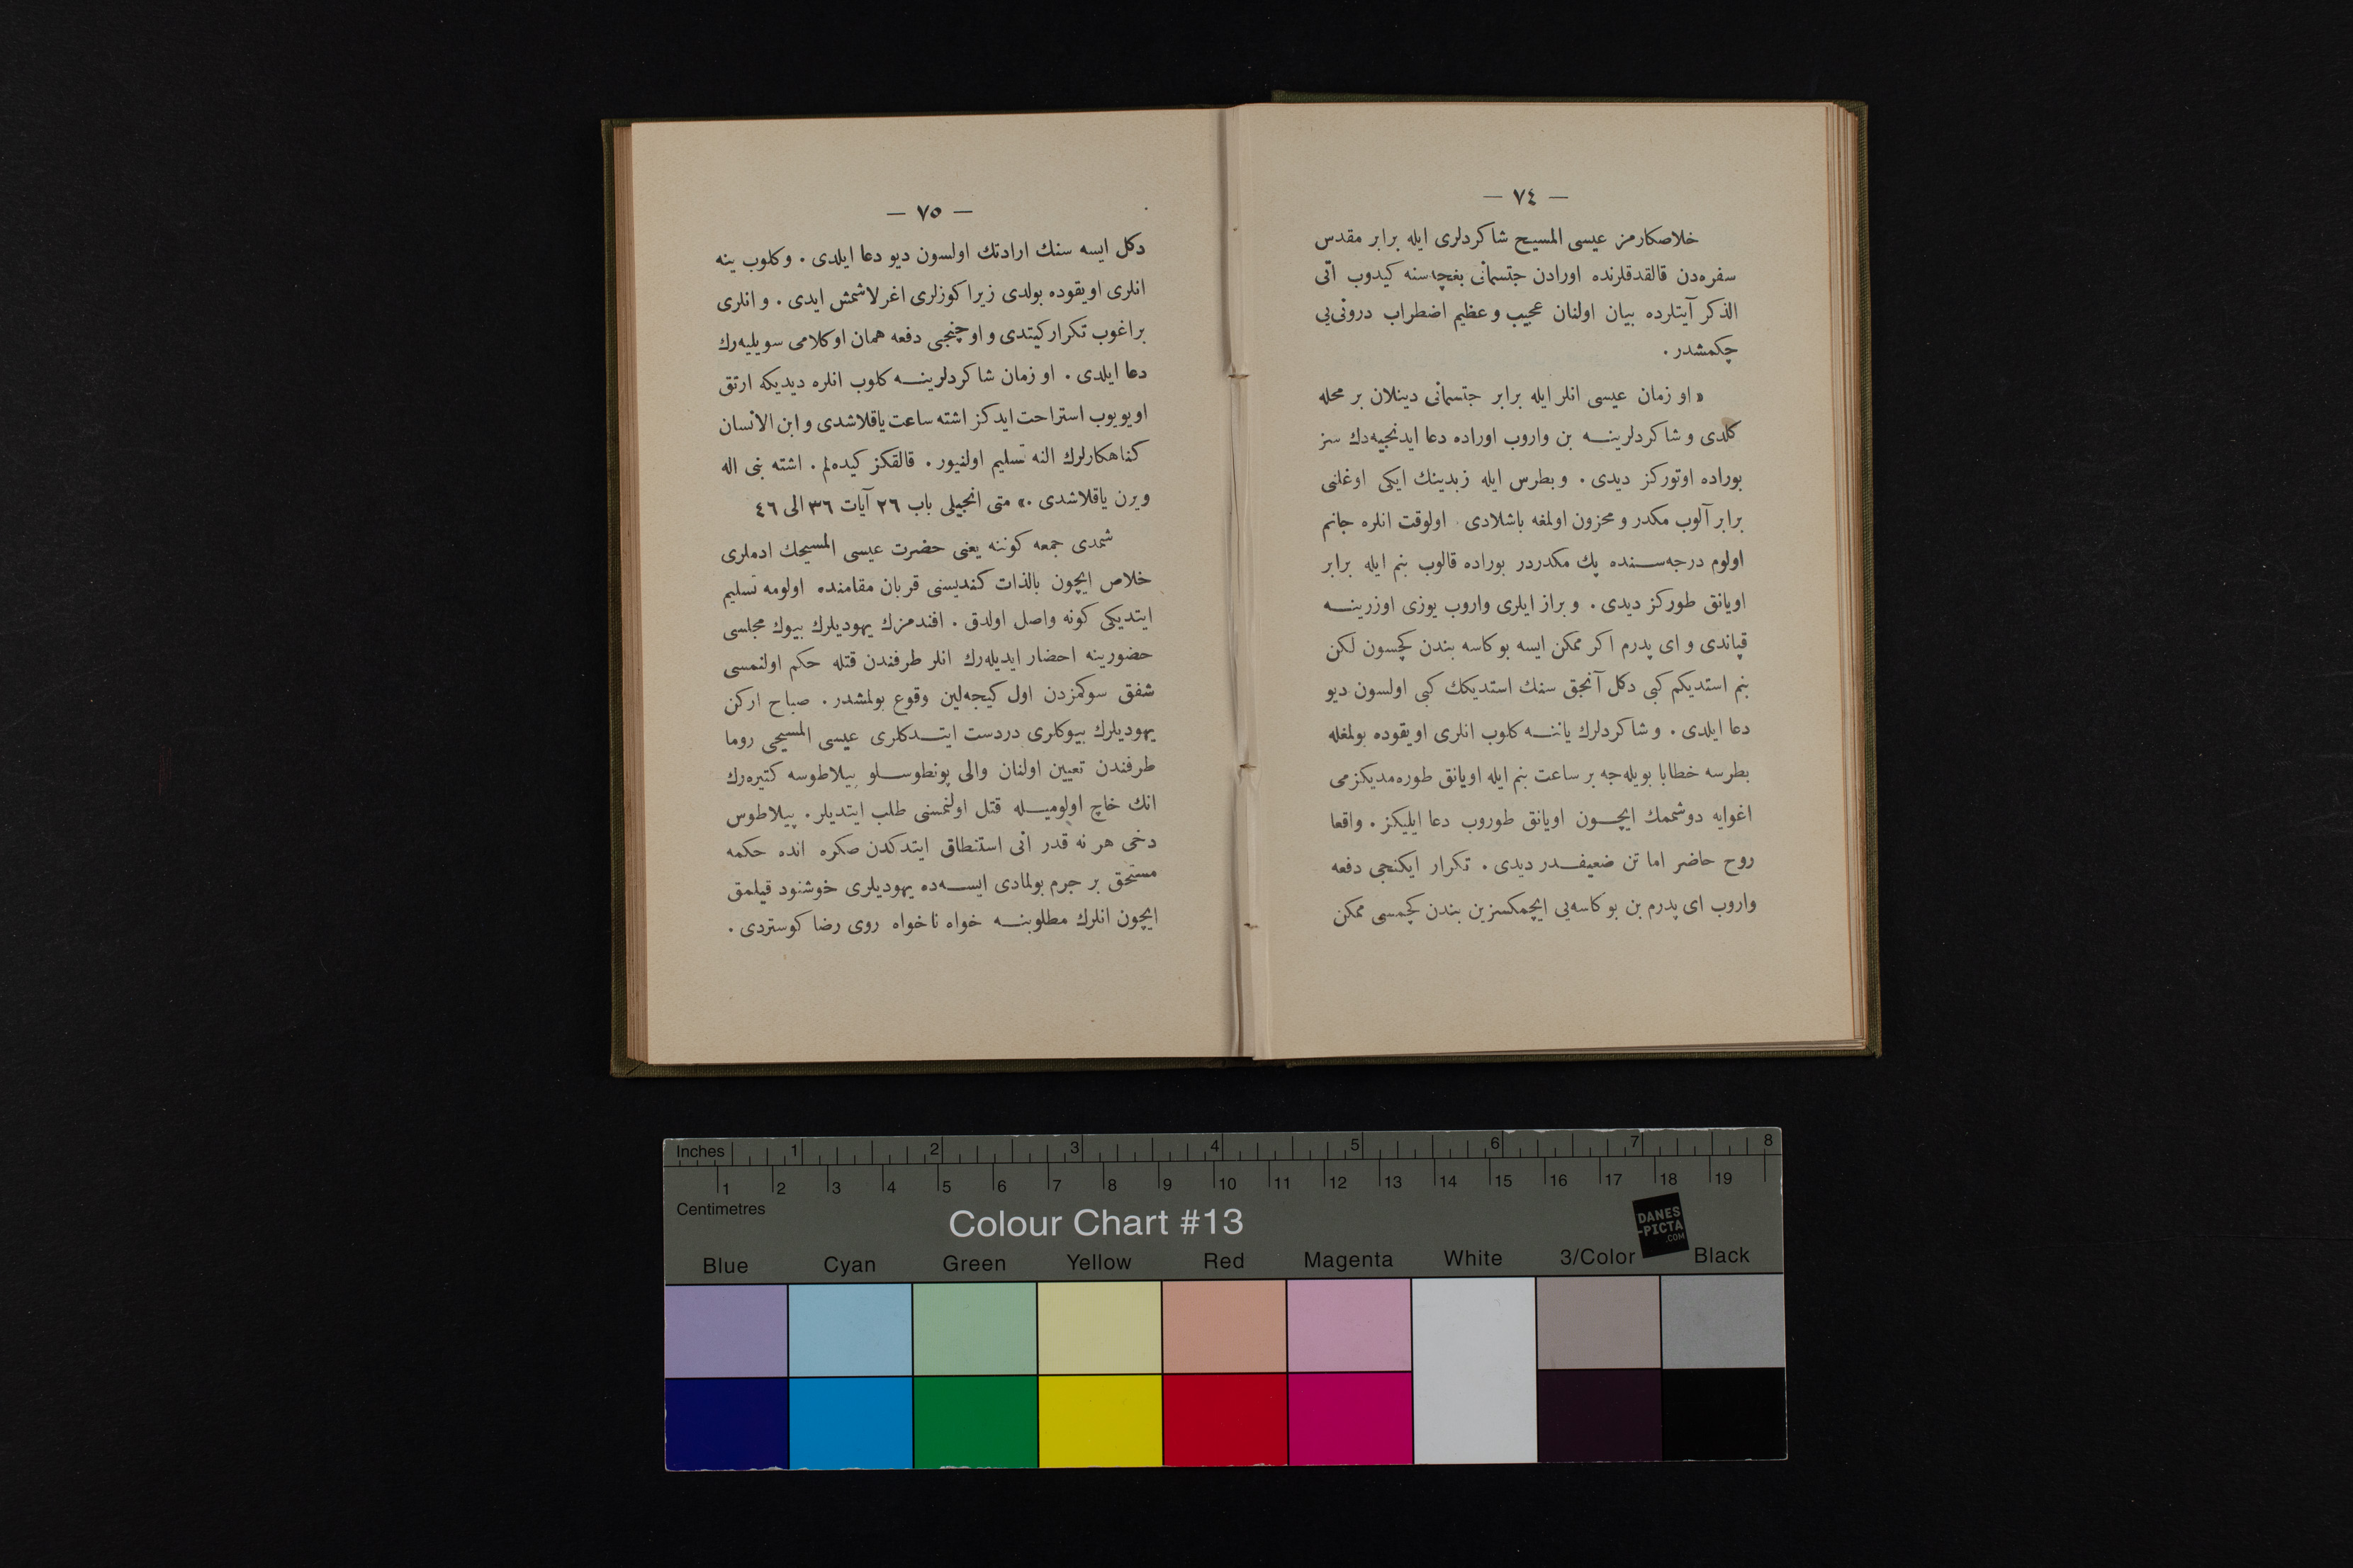 — ٧٤ —
خلاصكارمز عیسی المسیح شاكردلری ایله برابر مقدس
سفره‌دن قالقدقلرنده اورادن جتسمانی بغچه‌سنه كیدوب آتی
الذكر آیتلرده بیان اولنان عجیب و عظیم اضطراب درونی‌یی
چكمشدر .
« او زمان عیسی انلر ایله برابر جتسمانی دینلان بر محله
كلدی و شاكردلرینه بن واروب اوراده دعا ایدنجیه‌دك سز
بوراده اوتوركز دیدی . و بطرس ایله زبدینك ایكی اوغلنی
برابر آلوب مكدر و محزون اولمغه باشلادی . اولوقت انلره جانم
اولوم درجه‌سنده پك مكدردر بوراده قالوب بنم ایله برابر
اویانق طوركز دیدی . و براز ایلری واروب یوزی اوزرینه
قپاندی و ای پدرم اكر ممكن ایسه بو كاسه بندن كچسون لكن
بنم استدیكم كبی دكل آنجق سنك استدیكك كبی اولسون دیو
دعا ایلدی . و شاكردلرك یاننه كلوب انلری اویقوده بولمغله
بطرسه خطابا بویله‌جه بر ساعت بنم ایله اویانق طوره‌مدیكزمی
اغوایه دوشممك ایچون اویانق طوروب دعا ایلیكز . واقعا
روح حاضر اما تن ضعیفدر دیدی . تكرار ایكنجی دفعه
واروب ای پدرم بن بو كاسه‌یی ایچمكسزین بندن كچمسی ممكن
— ٧٥ —
دكل ایسه سنك ارادتك اولسون دیو دعا ایلدی . و كلوب ینه
انلری اویقوده بولدی زیرا كوزلری اغرلاشمش ایدی . و انلری
براغوب تكرار كیتدی و اوچنجی دفعه همان او كلامی سویلیه‌رك
دعا ایلدی . او زمان شاكردلرینه كلوب انلره دیدیكه ارتق
اویویوب استراحت ایدكز اشته ساعت یاقلاشدی و ابن الانسان
كناهكارلرك النه تسلیم اولنیور . قالقكز كیده‌لم . اشته بنی اله
ویرن یاقلاشدی .» متی انجیلی باب ٢٦ آیات ٣٦ الی ٤٦
شمدی جمعه كوننه یعنی حضرت عیسی المسیحك ادملری
خلاص ایچون بالذات كندیسنی قربان مقامنده اولومه تسلیم
ایتدیكی كونه واصل اولدق . افندمزك یهودیلرك بیوك مجلسی
حضورینه احضار ایدیله‌رك انلر طرفندن قتله حكم اولنمسی
شفق سوكمزدن اول كیجه‌لین وقوع بولمشدر . صباح اركن
یهودیلرك بیوكلری دردست ایتدكلری عیسی المسیحی روما
طرفندن تعیین اولنان والی پونطوسلو پیلاطوسه كتیره‌رك
انك خاچ اولومیله قتل اولنمسنی طلب ایتدیلر . پیلاطوس
دخی هر نه قدر انی استنطاق ایتدكدن صكره انده حكمه
مستحق بر جرم بولمادی ایسه‌ده یهودیلری خوشنود قیلمق
ایچون انلرك مطلوبنه خواه ناخواه روی رضا كوستردی .
Inches 1 2 3 4 5 6 7 8
1 2 3 4 5 6 7 8 9 10 11 12 13 14 15 16 17 18 19
Centimetres
Colour Chart #13
DANES
-PICTA
.COM
Blue Cyan Green Yellow Red Magenta White 3/Color Black